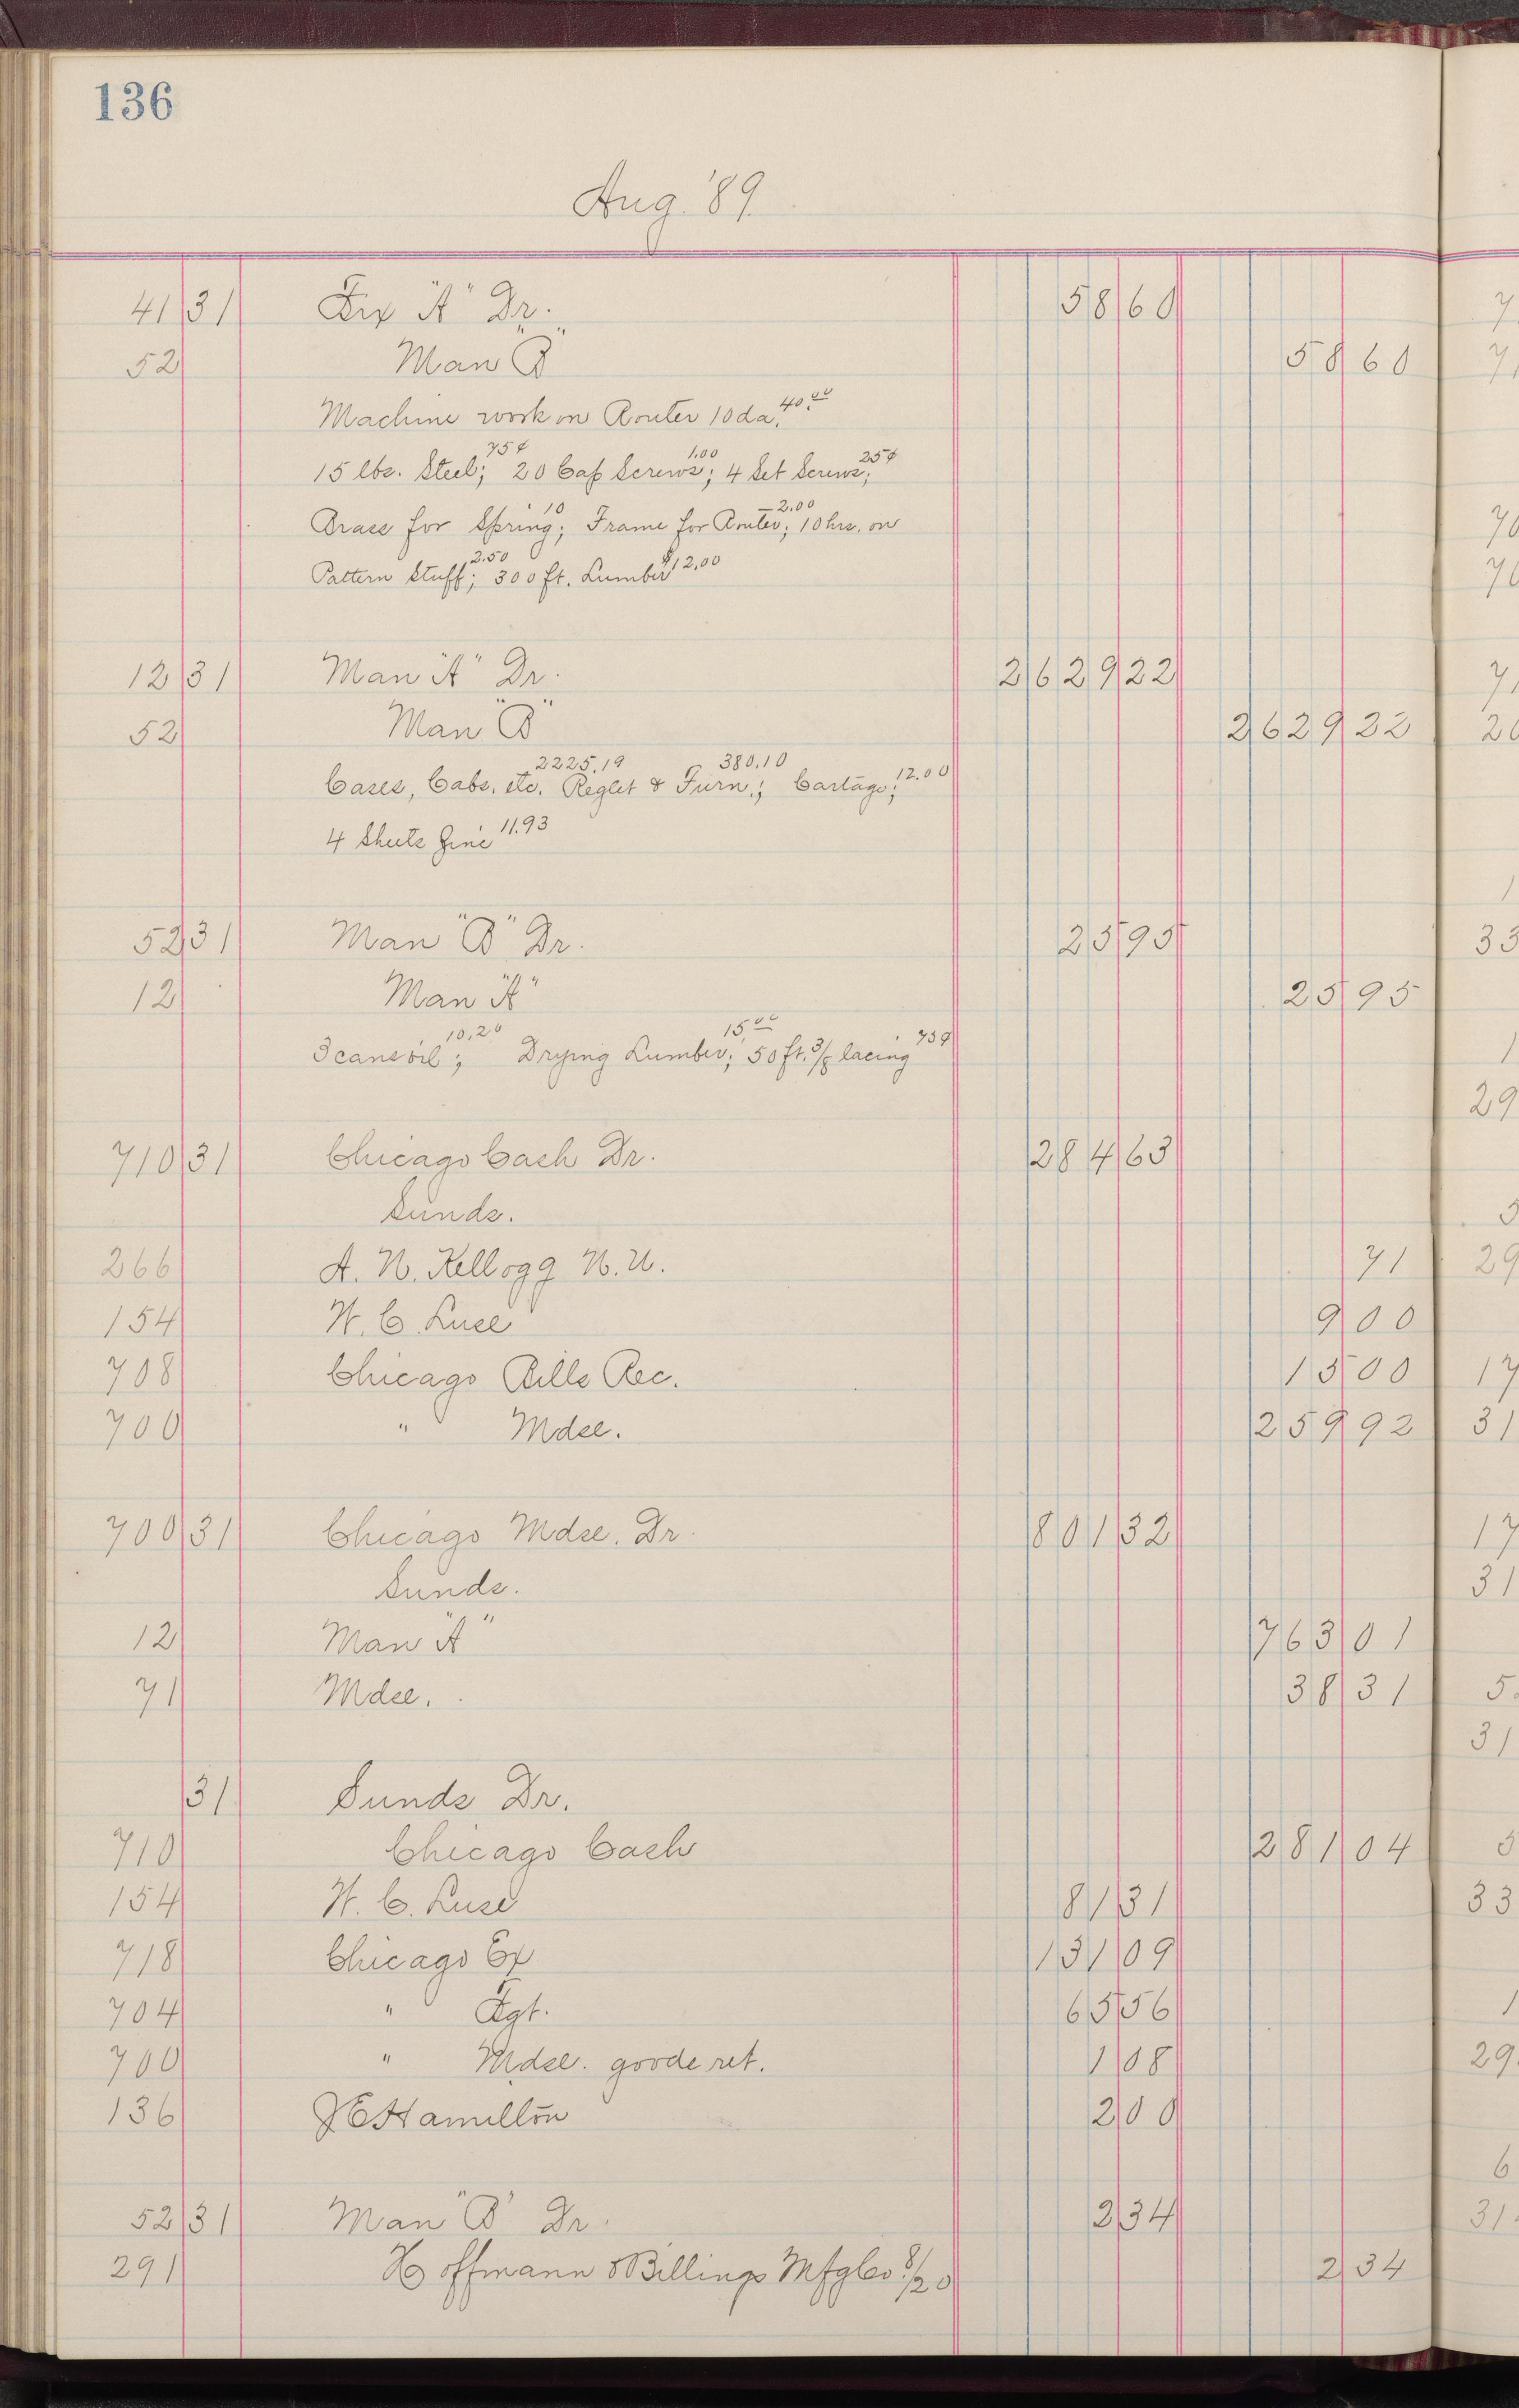 136
Aug. '89.
41 31 Fix "A" Dr. 58 60
52 Man "B" 58 60
Machine work on Router 10 da. 40.00
15 lbs. Steel; 75¢ 20 Cap Screws; 1.00 4 Set Screws; 25¢
Brass for Spring; 10 Frame for Router; 2.00 10 hrs. on
Pattern Stuff; 2.50 300 ft. Lumber $12.00
12 31 Man "A" Dr. 2629 22
52 Man "B" 2629 22
Cases, Cabs. etc. 2225.19 Reglet & Furn.; 380.10 Cartage; 12.00
4 Sheets Zinc 11.93
52 31 Man "B" Dr. 25 95
12 Man "A" 25 95
3 cans oil; 10.20 Drying Lumber; 15.00 50 ft. 3/8 lacing 75¢
710 31 Chicago Cash Dr. 284 63
Sunds.
266 A. N. Kellogg N. U. 71
154 W. C. Luse 9 00
708 Chicago Bills Rec. 15 00
700 " Mdse. 259 92
700 31 Chicago Mdse. Dr. 801 32
Sunds.
12 Man "A" 763 01
71 Mdse. 38 31
31 Sunds Dr.
710 Chicago Cash 281 04
154 W. C. Luse 81 31
718 Chicago Ex 131 09
704 " Fgt. 65 56
700 " Mdse. goods ret. 1 08
136 J E Hamilton 2 00
52 31 Man "B" Dr. 2 34
291 Hoffmann & Billings Mfg Co 8/20 2 34